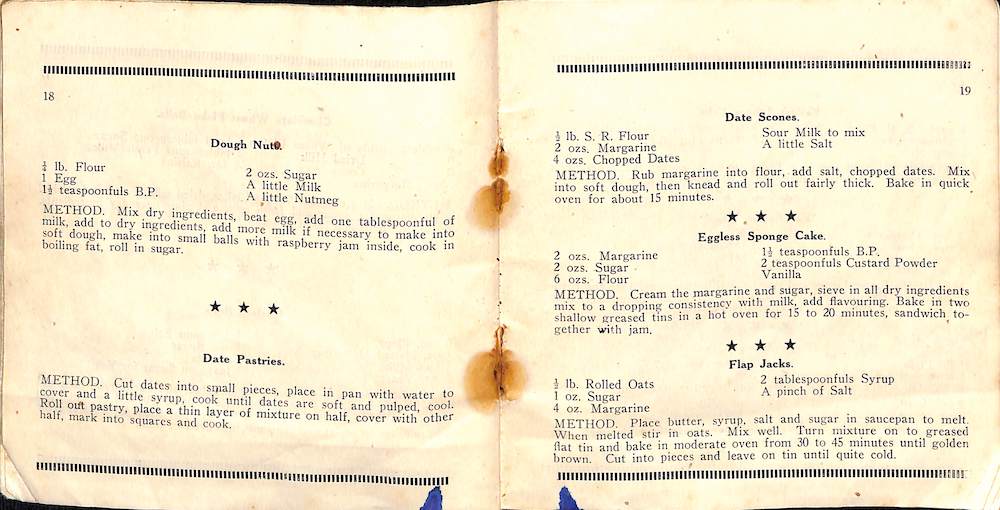 18
Dough Nuts.
¼ lb. Flour
1 Egg
1½ teaspoonfuls B.P.
2 ozs. Sugar
A little Milk
A little Nutmeg
METHOD. Mix dry ingredients, beat egg, add one tablespoonful of
milk, add to dry ingredients, add more milk if necessary to make into
soft dough, make into small balls with raspberry jam inside, cook in
boiling fat, roll in sugar.
★ ★ ★
Date Pastries.
METHOD. Cut dates into small pieces, place in pan with water to
cover and a little syrup, cook until dates are soft and pulped, cool.
Roll out pastry, place a thin layer of mixture on half, cover with other
half, mark into squares and cook.
19
Date Scones.
½ lb. S. R. Flour
2 ozs. Margarine
4 ozs. Chopped Dates
Sour Milk to mix
A little Salt
METHOD. Rub margarine into flour, add salt, chopped dates. Mix
into soft dough, then knead and roll out fairly thick. Bake in quick
oven for about 15 minutes.
★ ★ ★
Eggless Sponge Cake.
2 ozs. Margarine
2 ozs. Sugar
6 ozs. Flour
1½ teaspoonfuls B.P.
2 teaspoonfuls Custard Powder
Vanilla
METHOD. Cream the margarine and sugar, sieve in all dry ingredients
mix to a dropping consistency with milk, add flavouring. Bake in two
shallow greased tins in a hot oven for 15 to 20 minutes, sandwich to-
gether with jam.
★ ★ ★
Flap Jacks.
½ lb. Rolled Oats
1 oz. Sugar
4 oz. Margarine
2 tablespoonfuls Syrup
A pinch of Salt
METHOD. Place butter, syrup, salt and sugar in saucepan to melt.
When melted stir in oats. Mix well. Turn mixture on to greased
flat tin and bake in moderate oven from 30 to 45 minutes until golden
brown. Cut into pieces and leave on tin until quite cold.